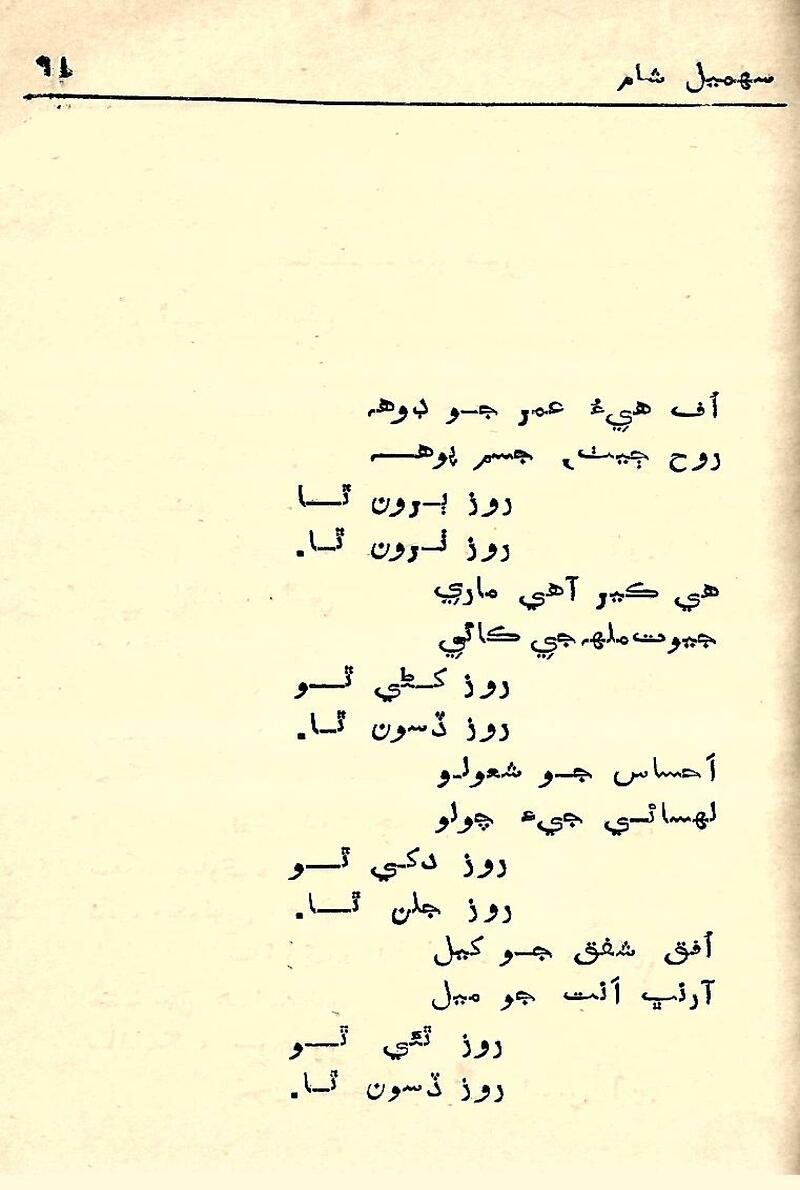 سهميل شام ٩١
اُف هيءُ عمر جو ڊوهه
روح چيٽ، جسم پوهه
روز ڀرون ٿا
روز ٺرون ٿا.
هي ڪير آهي ماري
جيوت ملهه جي ڪاٿي
روز کڻي ٿو
روز ڏسون ٿا.
اَحساس جو شعولو
لهسائي جيءَ چولو
روز دکي ٿو
روز جلن ٿا.
اُفق شفق جو کيل
آرنڀ اَنت جو ميل
روز ٿئي ٿو
روز ڏسون ٿا.